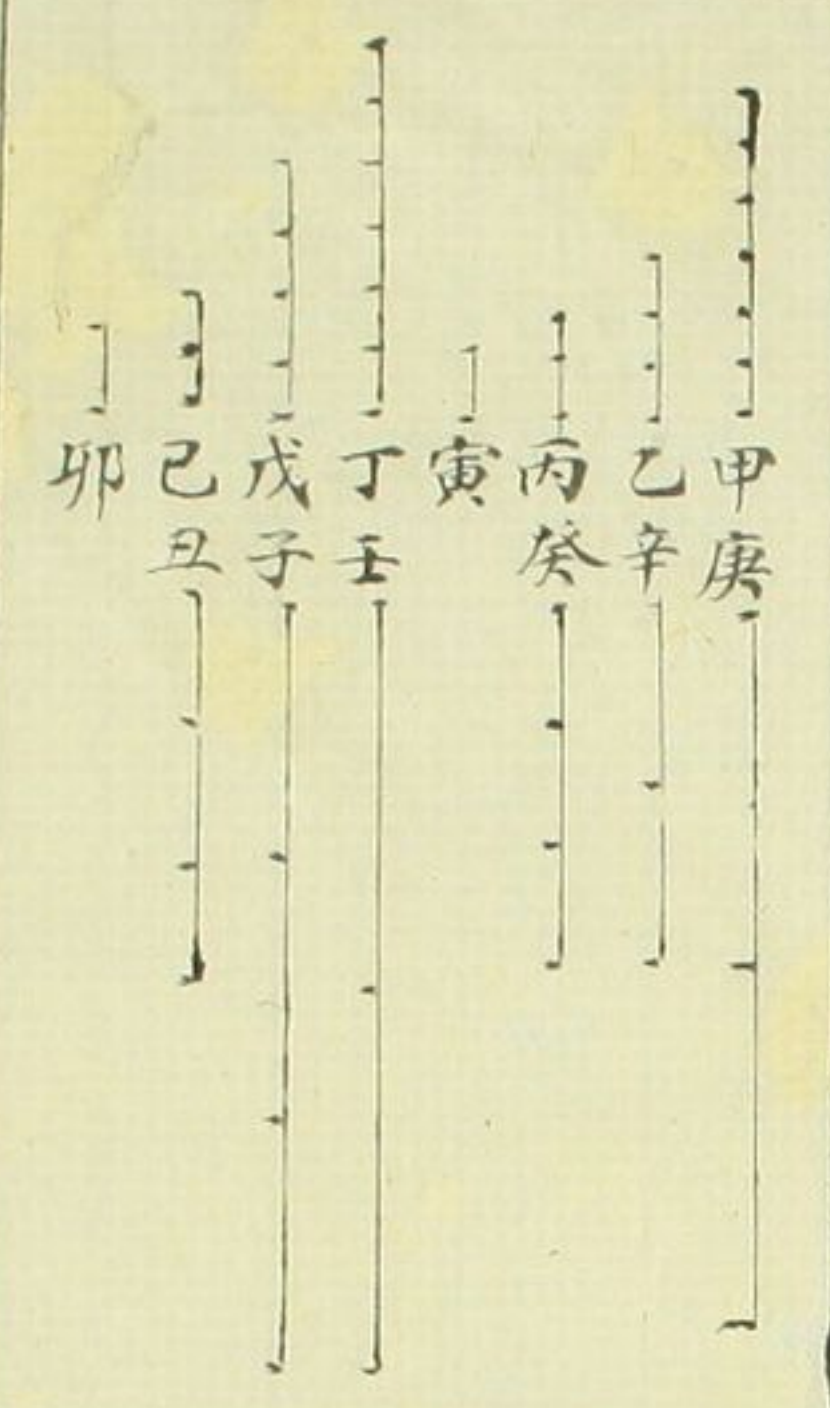 甲庚
乙辛
丙癸
寅
丁壬
戊子
己丑
卯